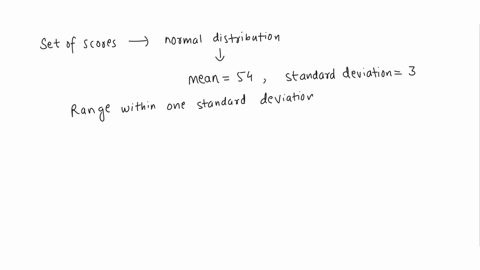 Set of scores → normal distribution
↓
mean = 54 , standard deviation = 3
Range within one standard deviation